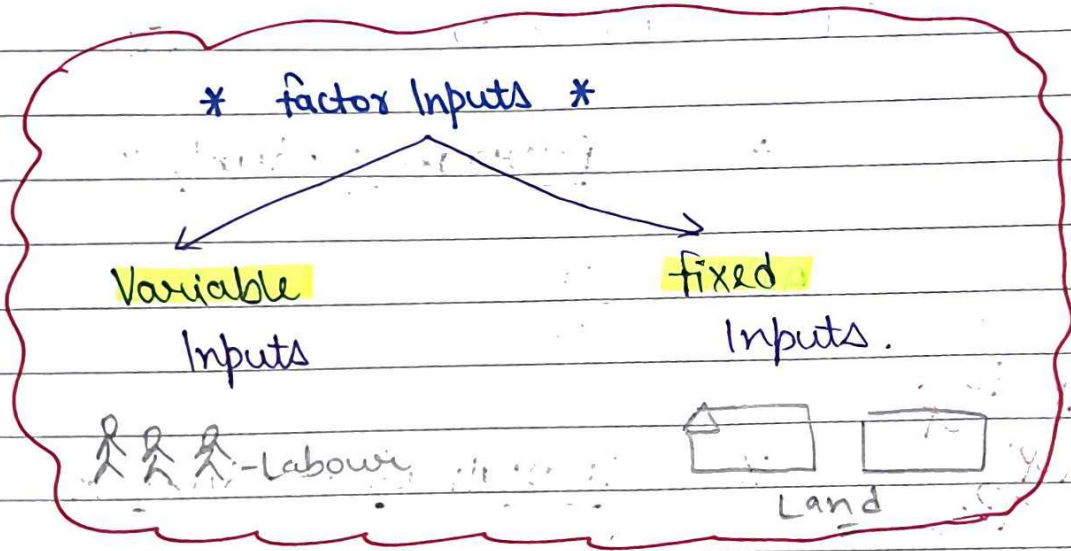 * factor Inputs *
Variable
Inputs
fixed
Inputs.
-Labour
Land